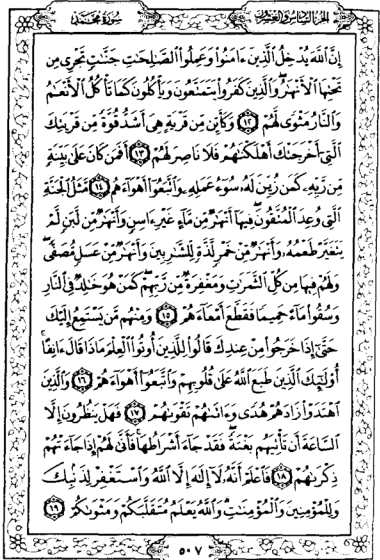 الجزء السادس والعشرون
سورة محمد
إِنَّ ٱللَّهَ يُدْخِلُ ٱلَّذِينَ ءَامَنُوا۟ وَعَمِلُوا۟ ٱلصَّٰلِحَٰتِ جَنَّٰتٍ تَجْرِى مِن
تَحْتِهَا ٱلْأَنْهَٰرُ ۖ وَٱلَّذِينَ كَفَرُوا۟ يَتَمَتَّعُونَ وَيَأْكُلُونَ كَمَا تَأْكُلُ ٱلْأَنْعَٰمُ
وَٱلنَّارُ مَثْوًى لَّهُمْ ١٢ وَكَأَيِّن مِّن قَرْيَةٍ هِىَ أَشَدُّ قُوَّةً مِّن قَرْيَتِكَ
ٱلَّتِىٓ أَخْرَجَتْكَ أَهْلَكْنَٰهُمْ فَلَا نَاصِرَ لَهُمْ ١٣ أَفَمَن كَانَ عَلَىٰ بَيِّنَةٍ
مِّن رَّبِّهِۦ كَمَن زُيِّنَ لَهُۥ سُوٓءُ عَمَلِهِۦ وَٱتَّبَعُوٓا۟ أَهْوَآءَهُم ١٤ مَّثَلُ ٱلْجَنَّةِ
ٱلَّتِى وُعِدَ ٱلْمُتَّقُونَ ۖ فِيهَآ أَنْهَٰرٌ مِّن مَّآءٍ غَيْرِ ءَاسِنٍ وَأَنْهَٰرٌ مِّن لَّبَنٍ لَّمْ
يَتَغَيَّرْ طَعْمُهُۥ وَأَنْهَٰرٌ مِّنْ خَمْرٍ لَّذَّةٍ لِّلشَّٰرِبِينَ وَأَنْهَٰرٌ مِّنْ عَسَلٍ مُّصَفًّى ۖ
وَلَهُمْ فِيهَا مِن كُلِّ ٱلثَّمَرَٰتِ وَمَغْفِرَةٌ مِّن رَّبِّهِمْ ۖ كَمَنْ هُوَ خَٰلِدٌ فِى ٱلنَّارِ
وَسُقُوا۟ مَآءً حَمِيمًا فَقَطَّعَ أَمْعَآءَهُمْ ١٥ وَمِنْهُم مَّن يَسْتَمِعُ إِلَيْكَ
حَتَّىٰٓ إِذَا خَرَجُوا۟ مِنْ عِندِكَ قَالُوا۟ لِلَّذِينَ أُوتُوا۟ ٱلْعِلْمَ مَاذَا قَالَ ءَانِفًا ۚ
أُو۟لَٰٓئِكَ ٱلَّذِينَ طَبَعَ ٱللَّهُ عَلَىٰ قُلُوبِهِمْ وَٱتَّبَعُوٓا۟ أَهْوَآءَهُمْ ١٦ وَٱلَّذِينَ
ٱهْتَدَوْا۟ زَادَهُمْ هُدًى وَءَاتَىٰهُمْ تَقْوَىٰهُمْ ١٧ فَهَلْ يَنظُرُونَ إِلَّا
ٱلسَّاعَةَ أَن تَأْتِيَهُم بَغْتَةً ۖ فَقَدْ جَآءَ أَشْرَاطُهَا ۚ فَأَنَّىٰ لَهُمْ إِذَا جَآءَتْهُمْ
ذِكْرَىٰهُمْ ١٨ فَٱعْلَمْ أَنَّهُۥ لَآ إِلَٰهَ إِلَّا ٱللَّهُ وَٱسْتَغْفِرْ لِذَنۢبِكَ
وَلِلْمُؤْمِنِينَ وَٱلْمُؤْمِنَٰتِ ۗ وَٱللَّهُ يَعْلَمُ مُتَقَلَّبَكُمْ وَمَثْوَىٰكُمْ ١٩
٥٠٧